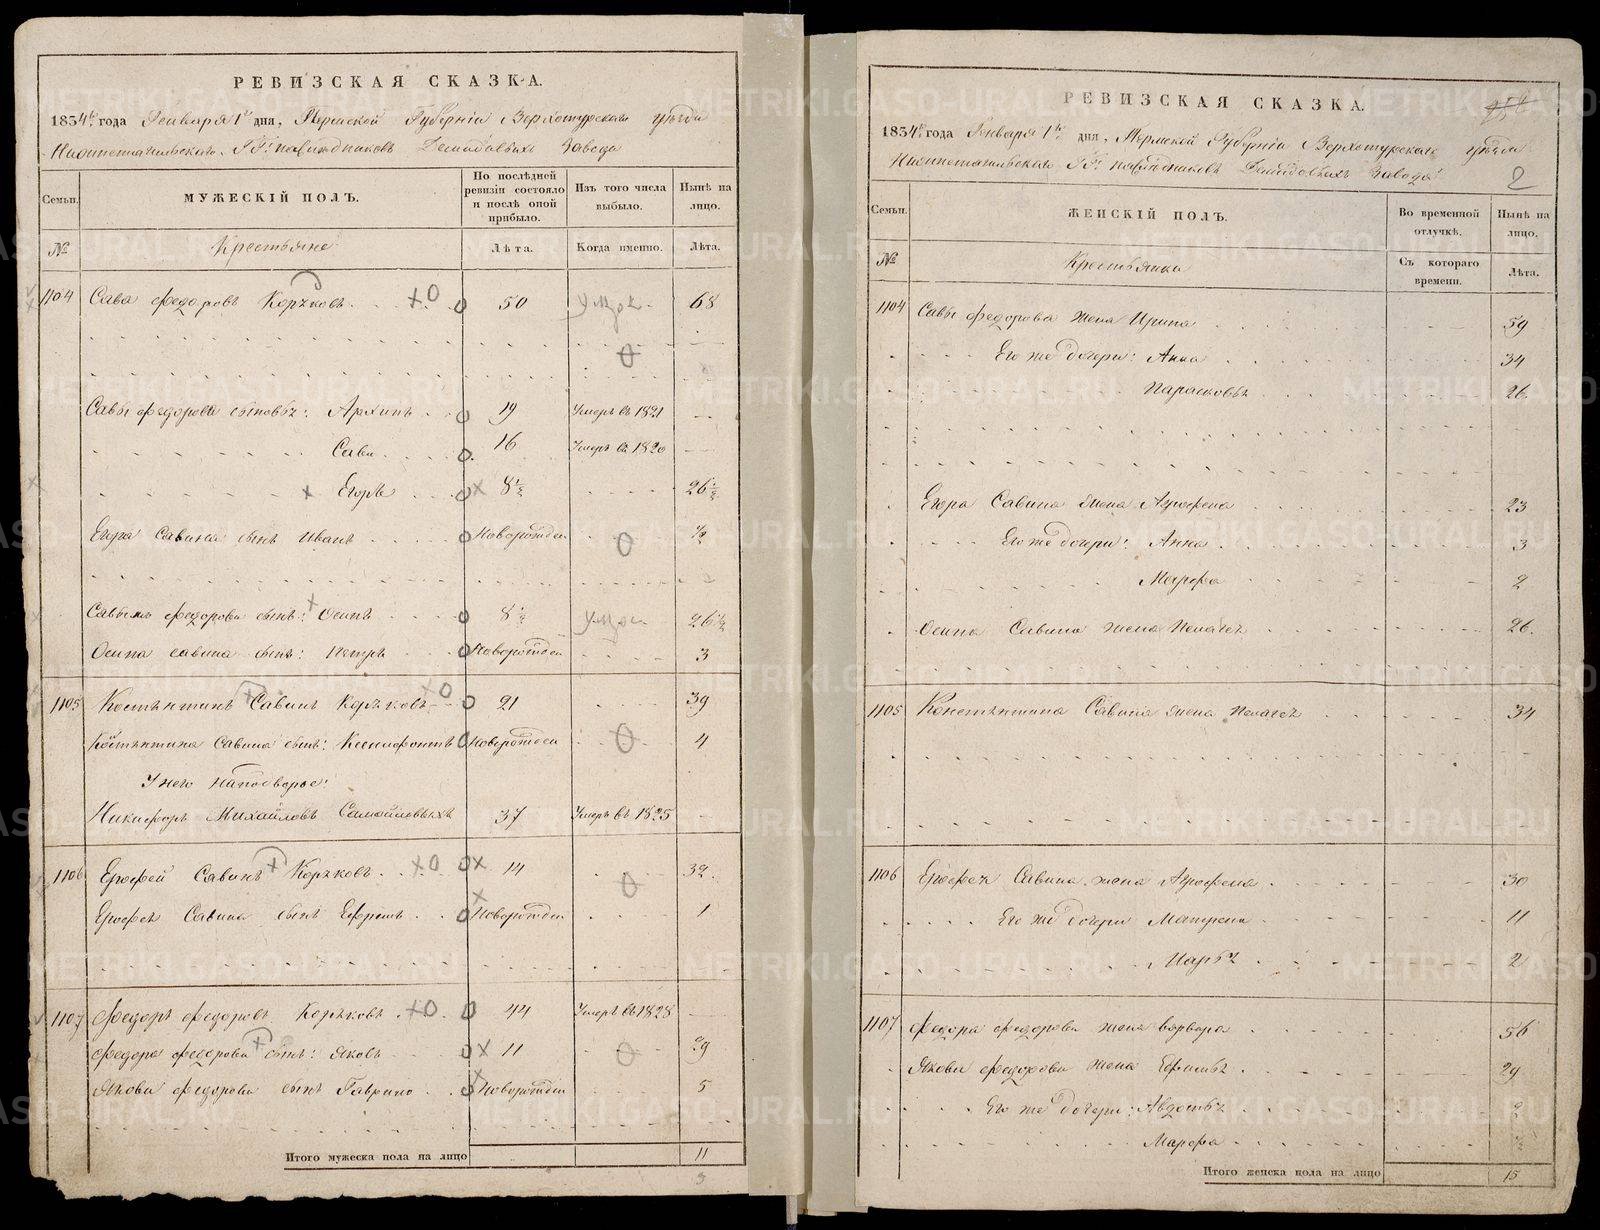 РЕВИЗСКАЯ СКАЗКА.
1834 года Генваря 1 дня, Пермской Губернiи Верхотурскаго уѣзда
Нижнетагильскаго Гг. наслѣдниковъ Демидовыхъ Завода
Семьи. МУЖЕСКIЙ ПОЛЪ. По последней ревизiи состояло и послѣ оной прибыло. Изъ того числа выбыло. Нынѣ на лицо.
№ Крестьяне Лѣта. Когда именно. Лѣта.
1104 Сава Федоровъ Коряковъ 50 68
Савы Федорова сыновья: Архипъ 19 Умеръ въ 1821
Сава 16 Умеръ въ 1820
Егоръ 8½ 26½
Егора Савина сынъ Иванъ Новорожден
Савы Федорова сынъ: Осипъ 8½ 26½
Осипа Савина сынъ: Петръ Новорожден 3
1105 Костянтинъ Савинъ Коряковъ 21 39
Костянтина Савина сынъ: Ксенофонтъ Новорожден 4
У него наподворье:
Никифоръ Михайловъ Самойловыхъ 37 Умеръ въ 1825
1106 Ерофей Савинъ Коряковъ 14 32
Ерофея Савина сынъ Ефремъ Новорожден 1
1107 Федоръ Федоровъ Коряковъ 44 Умеръ въ 1828
Федора Федорова сынъ: Яковъ 11 29
Якова Федорова сынъ Гаврило Новорожден 5
Итого мужеска пола на лицо 11
РЕВИЗСКАЯ СКАЗКА.
1834 года Января 1 дня, Пермской Губернiи Верхотурскаго уѣзда
Нижнетагильскаго Гг. наслѣдниковъ Демидовыхъ Завода
2
Семьи. ЖЕНСКIЙ ПОЛЪ. Во временной отлучкѣ. Нынѣ на лицо.
№ Крестьянки Съ котораго времени. Лѣта.
1104 Савы Федорова жена Ирина 59
Его же дочери: Анна 34
Парасковья 26
Егора Савина жена Агрофена 23
Его же дочери: Анна 3
Марфа 2
Осипа Савина жена Пелагея 26
1105 Констянтина Савина жена Пелагея 34
1106 Ерофея Савина жена Агрофена 30
Его же дочери Матрена 11
Марья 2
1107 Федора Федорова жена Варвара 56
Якова Федорова жена Ефимья 29
Его же дочери: Авдотья
Марфа
Итого женска пола на лицо 15
METRIKI.GASO-URAL.RU